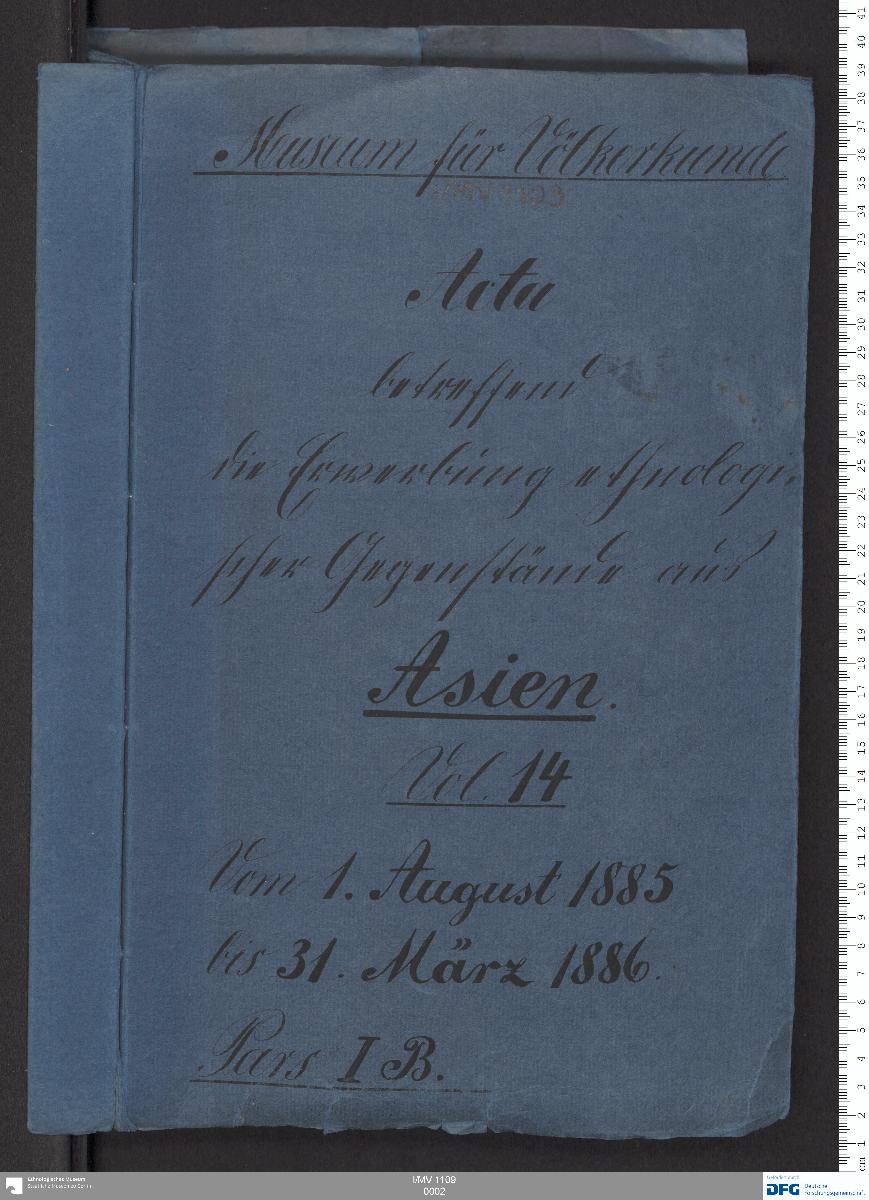 Museum für Völkerkunde
I/MV 1109
Acta
betreffend
die Erwerbung ethnologi-
scher Gegenstände aus
Asien.
Vol. 14
Vom 1. August 1885
bis 31. März 1886.
Pars I B.
Ethnologisches Museum
Staatliche Museen zu Berlin
I/MV 1109
0002
Gefördert durch
DFG Deutsche
Forschungsgemeinschaft
cm 1 2 3 4 5 6 7 8 9 10 11 12 13 14 15 16 17 18 19 20 21 22 23 24 25 26 27 28 29 30 31 32 33 34 35 36 37 38 39 40 41